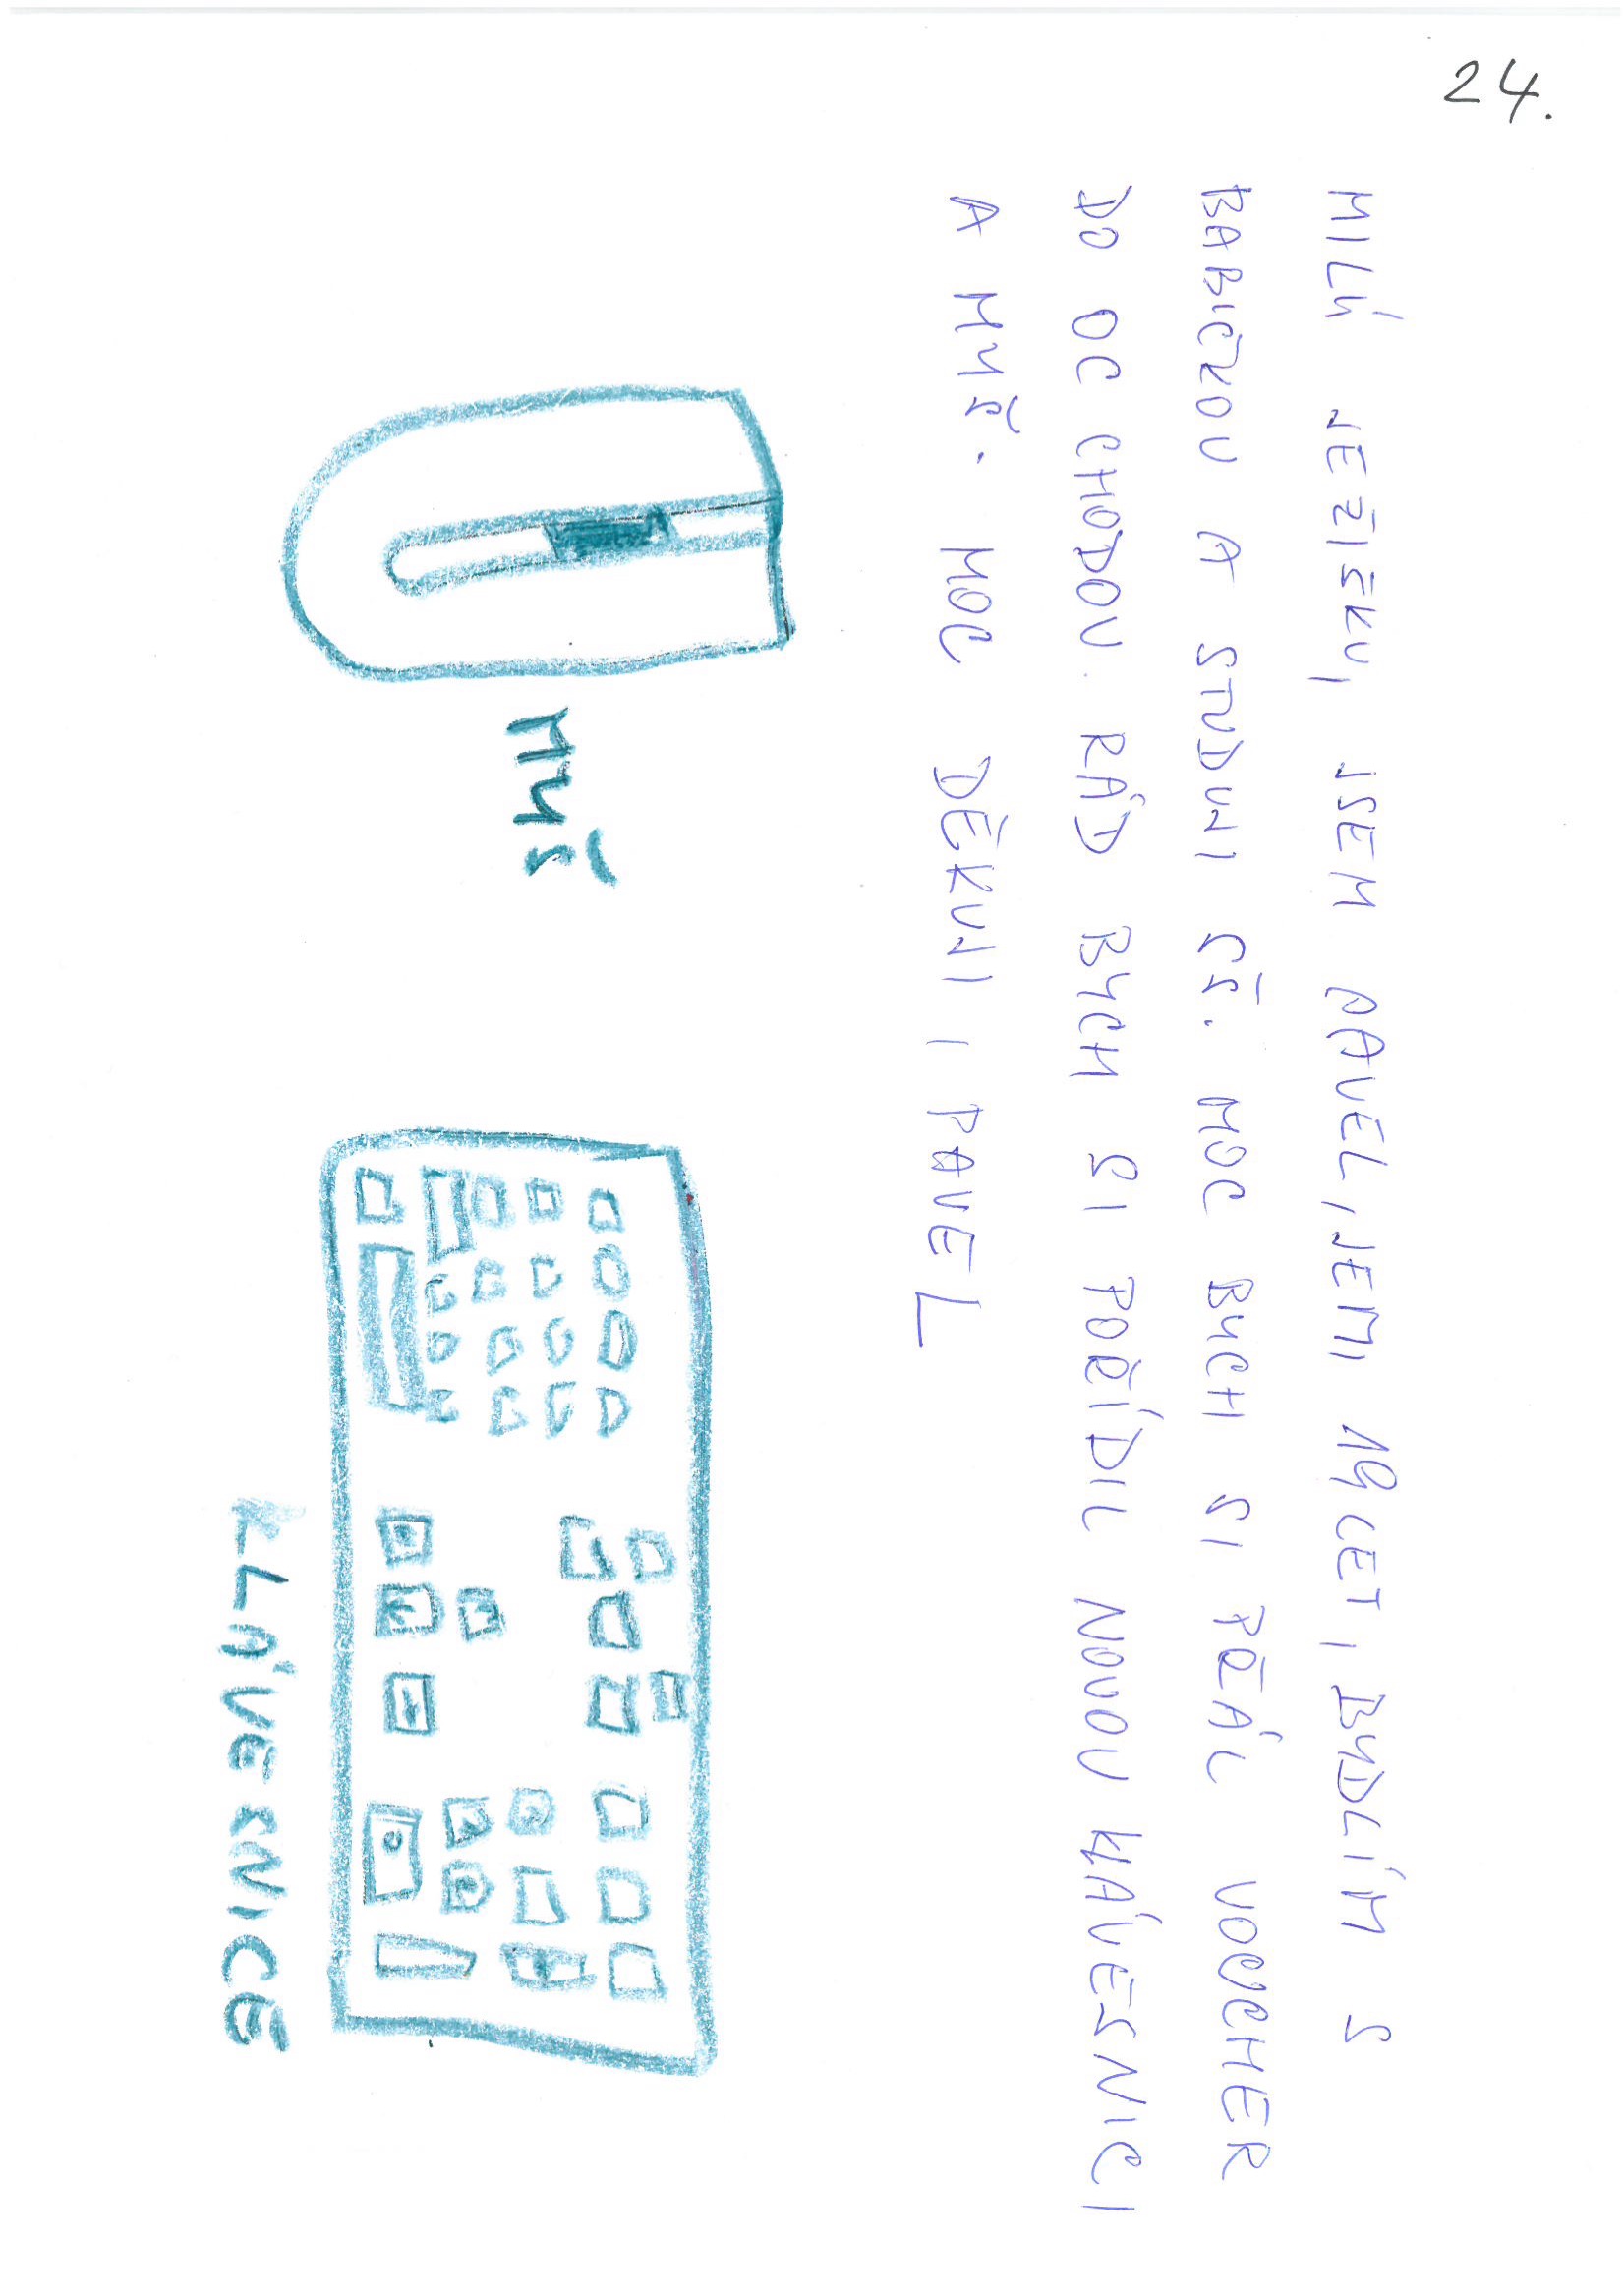 24.
MILÝ JEŽIŠKU, JSEM PAVEL, JE MI 19 LET, BYDLÍM S
BABIČKOU A STUDUJI SŠ. MOC BYCH SI PŘÁL VOUCHER
DO OC CHODOV. RÁD BYCH SI POŘÍDIL NOVOU KLÁVESNICI
A MYŠ. MOC DĚKUJI, PAVEL
MYŠ
KLÁVESNICE